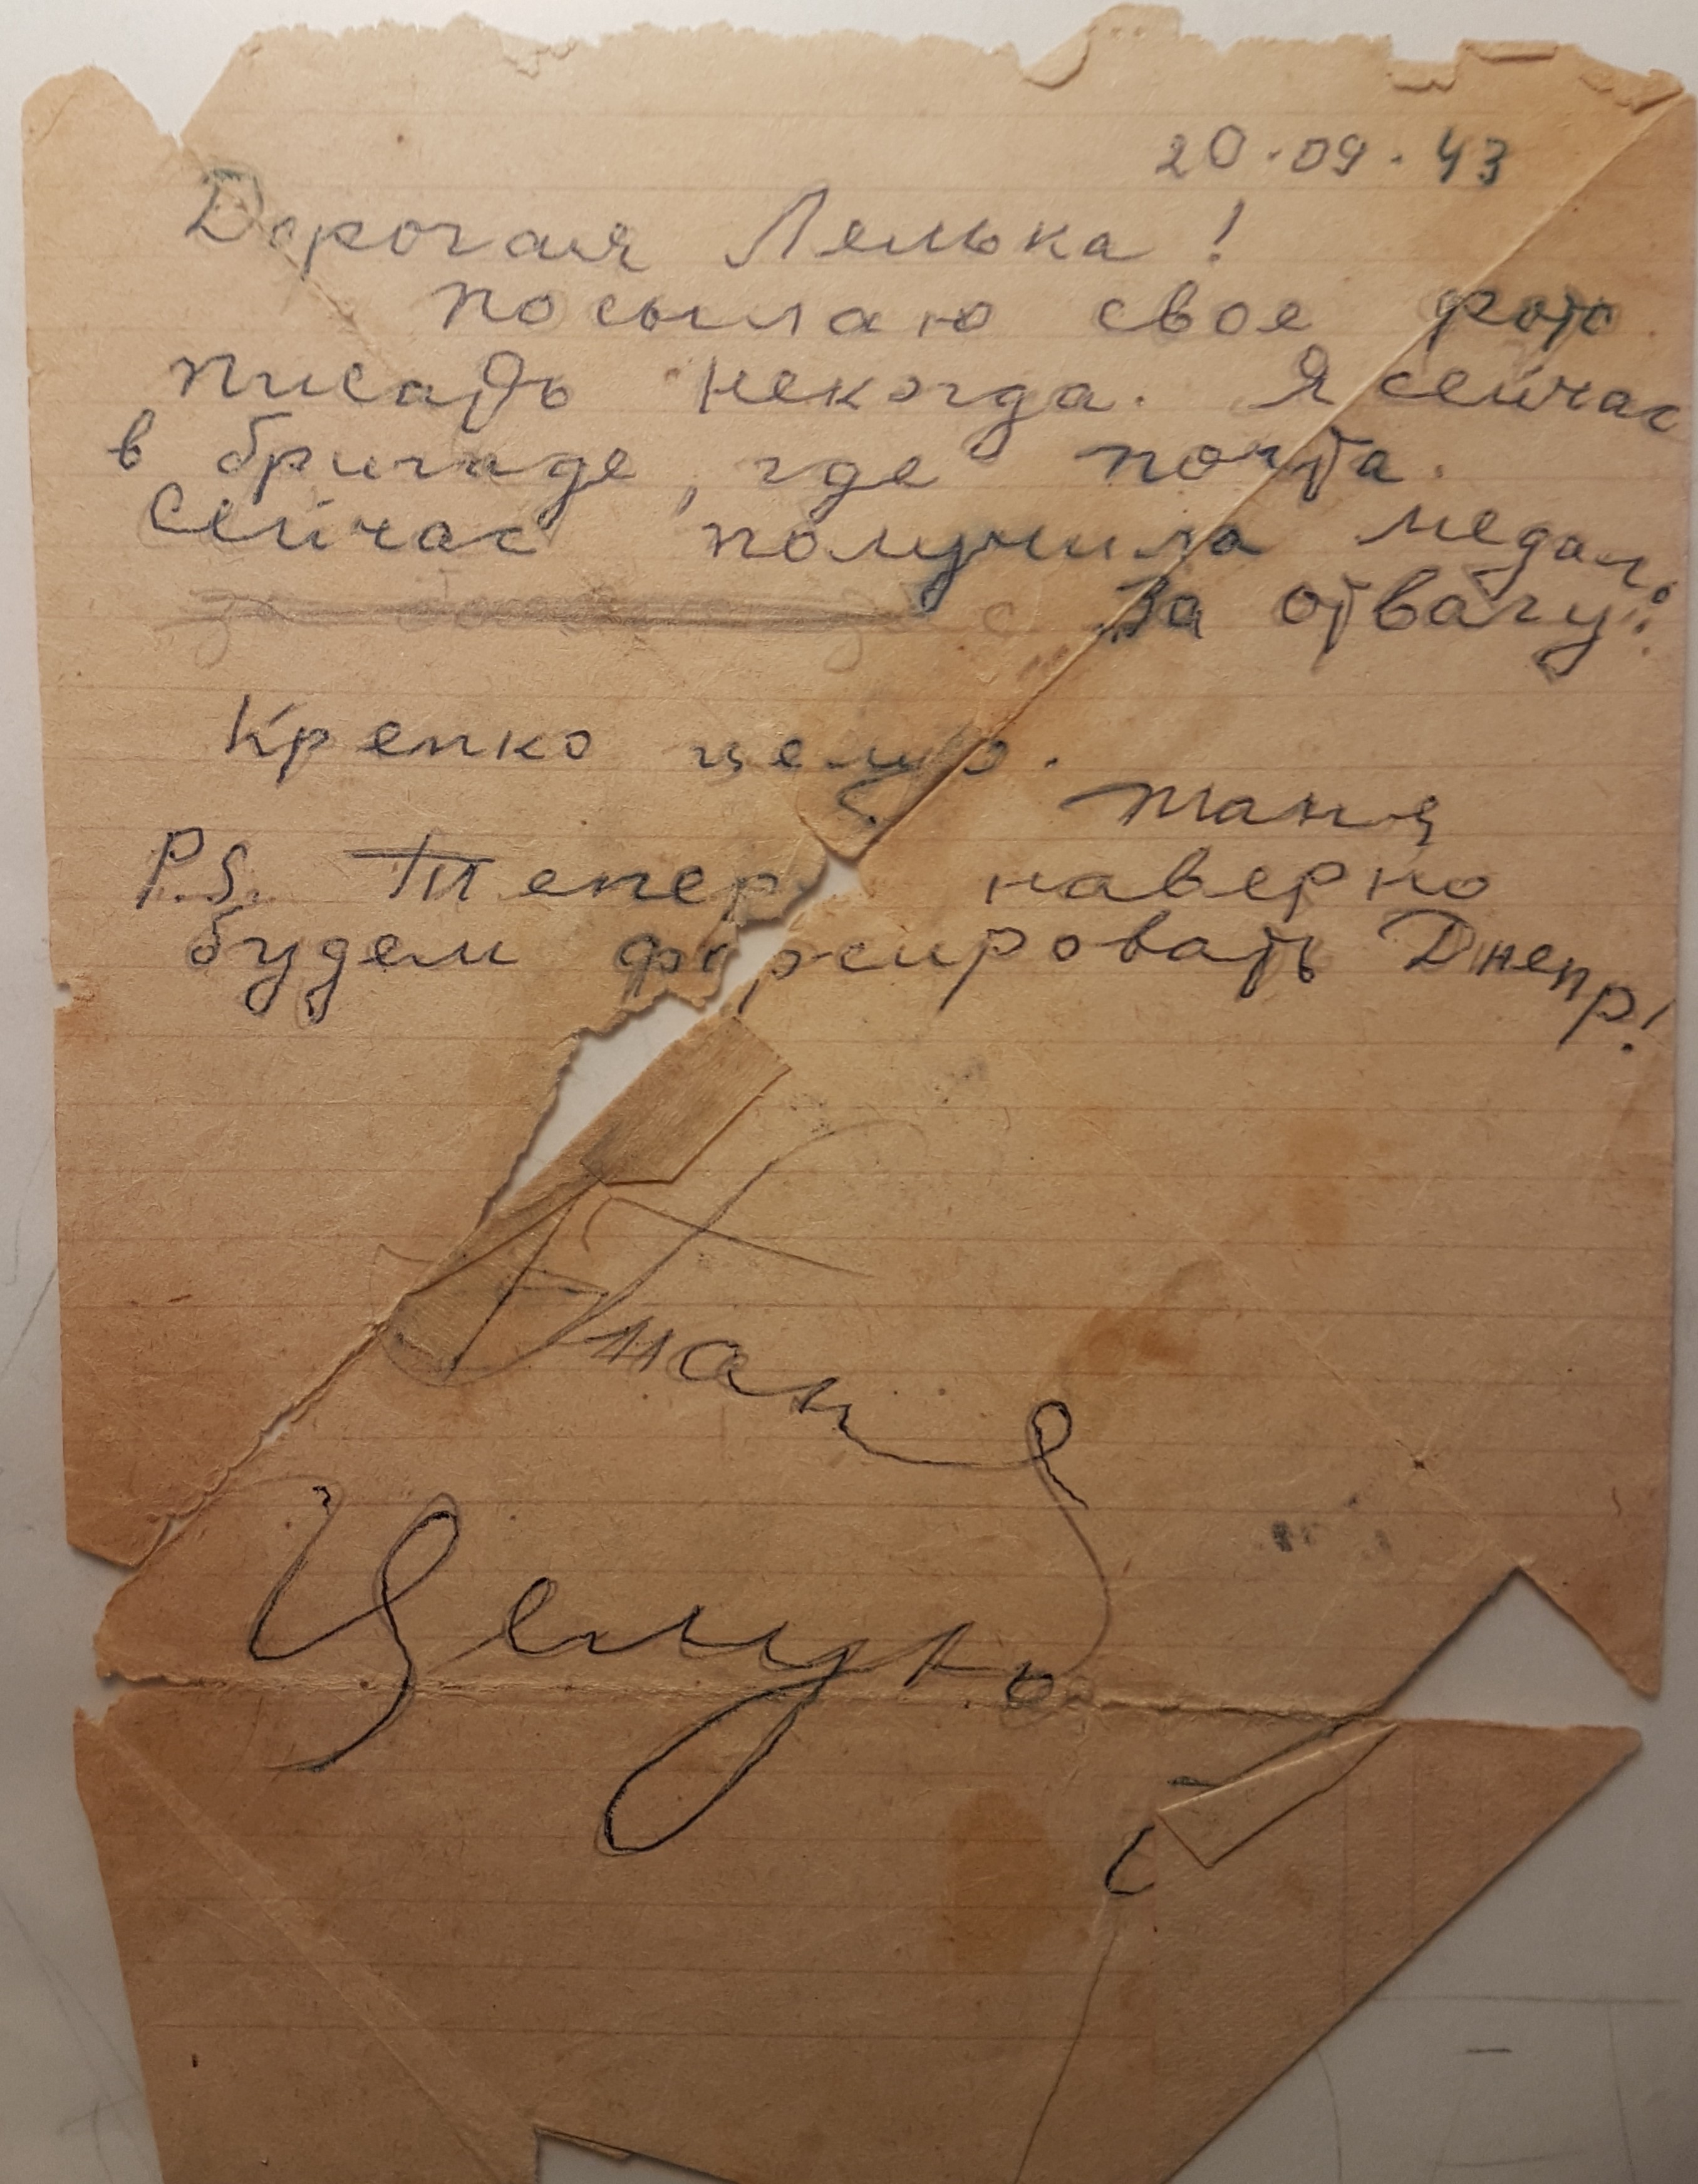 20.09.43
Дорогая Лелька!
посылаю свое фото
писать некогда. Я сейчас
в бригаде, где почта.
Сейчас получила медаль
За отвагу.
Крепко целую.
Таня
P.S. Тепер наверно
будем форсировать Днепр!
Таня
Целую